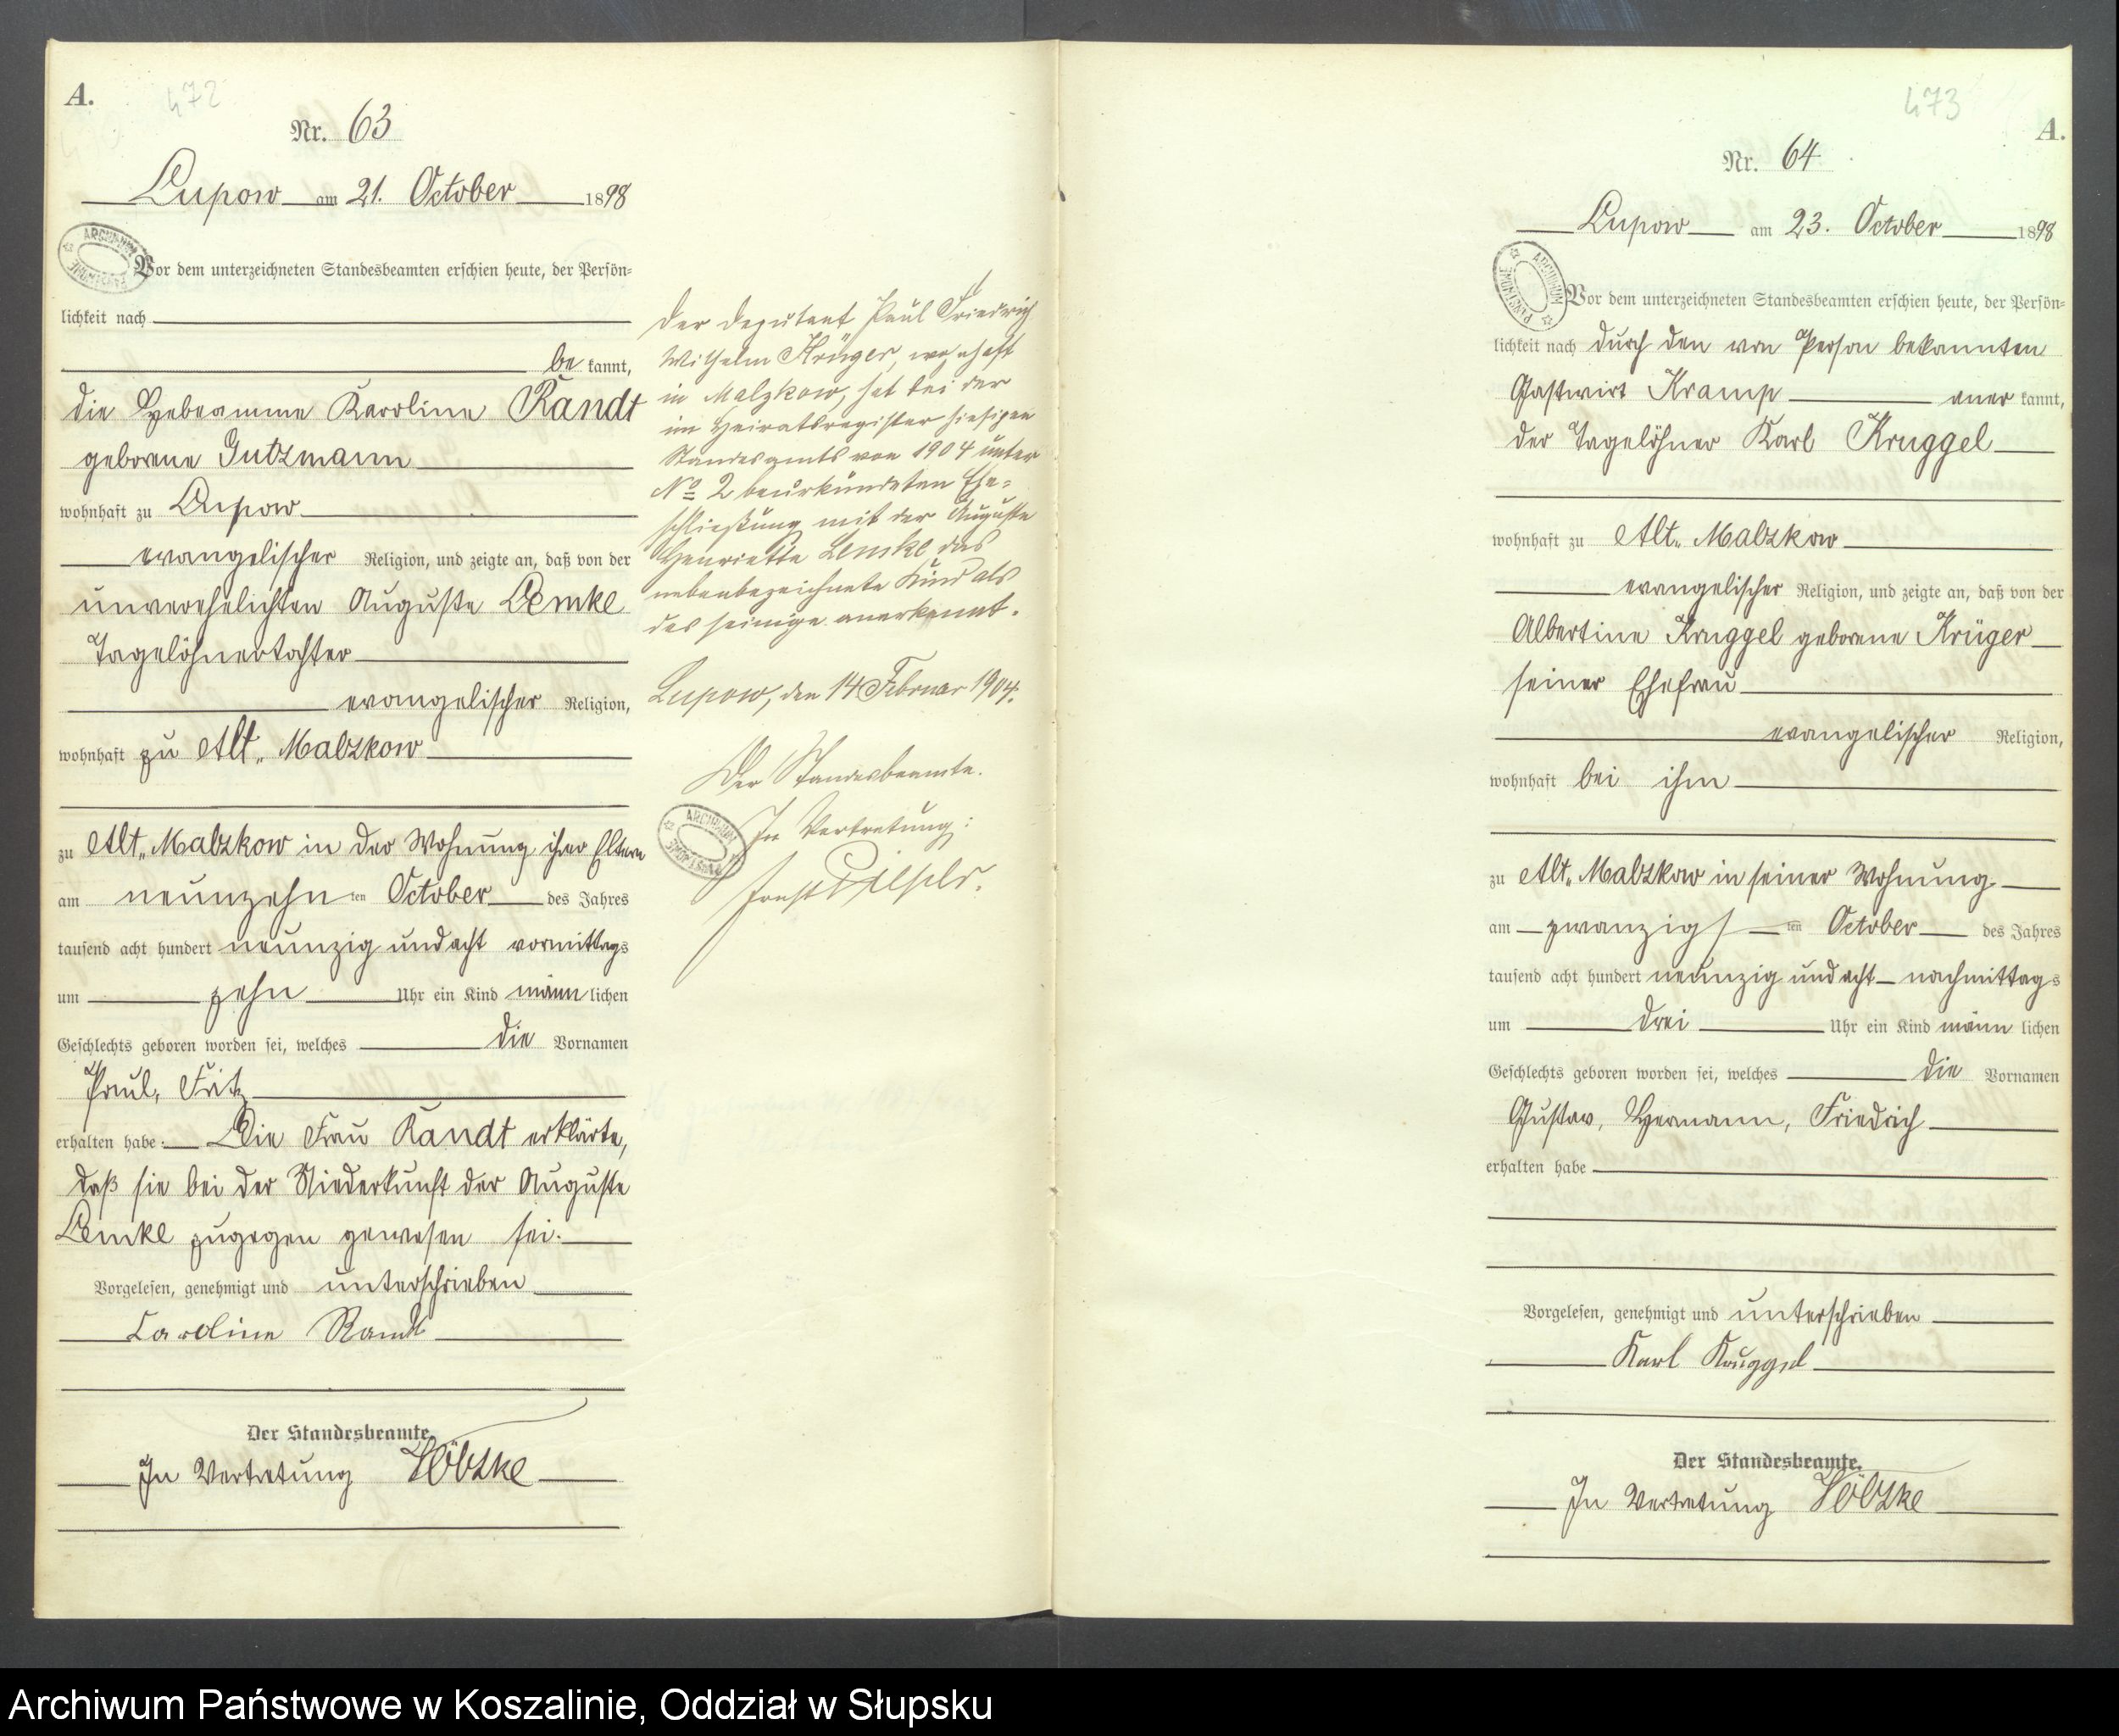 A.
472
Nr. 63
Lupow am 21. October 1898
ARCHIWUM PAŃSTWOWE
Vor dem unterzeichneten Standesbeamten erschien heute, der Persön-
lichkeit nach
be kannt,
die Hebeamme Karoline Randt
geborene Gutzmann
wohnhaft zu Lupow
evangelischer Religion, und zeigte an, daß von der
unverehelichten Auguste Lemke
Tagelöhnertochter
evangelischer Religion,
wohnhaft zu Alt-Malzkow
zu Alt-Malzkow in der Wohnung ihrer Eltern
am neunzehn ten October des Jahres
tausend acht hundert neunzig und acht vormittags
um zehn Uhr ein Kind männ lichen
Geschlechts geboren worden sei, welches die Vornamen
Paul, Fritz
erhalten habe. Die Frau Randt erklärte,
daß sie bei der Niederkunft der Auguste
Lemke zugegen gewesen sei.
Vorgelesen, genehmigt und unterschrieben
Caroline Randt
Der Standesbeamte.
In Vertretung
Der Deputant Paul Friedrich
Wilhelm Krüger, wohnhaft
in Malzkow, hat bei der
im Heiratsregister hiesigen
Standesamts von 1904 unter
No 2 beurkundeten Ehe-
schließung mit der Auguste
Henriette Lemke das
nebenbezeichnete Kind als
das seinige anerkannt.
Lupow, den 14 Februar 1904.
Der Standesbeamte.
In Vertretung:
ARCHIWUM PAŃSTWOWE
473
A.
Nr. 64
Lupow am 23. October 1898
ARCHIWUM PAŃSTWOWE
Vor dem unterzeichneten Standesbeamten erschien heute, der Persön-
lichkeit nach durch den von Person bekannten
Gastwirt Kramp aner kannt,
der Tagelöhner Karl Kruggel
wohnhaft zu Alt-Malzkow
evangelischer Religion, und zeigte an, daß von der
Albertine Kruggel geborene Krüger
seiner Ehefrau
evangelischer Religion,
wohnhaft bei ihm
zu Alt-Malzkow in seiner Wohnung
am zwanzigs ten October des Jahres
tausend acht hundert neunzig und acht nachmittags
um drei Uhr ein Kind männ lichen
Geschlechts geboren worden sei, welches die Vornamen
Gustav, Hermann, Friedrich
erhalten habe
Vorgelesen, genehmigt und unterschrieben
Karl Kruggel
Der Standesbeamte.
In Vertretung
Archiwum Państwowe w Koszalinie, Oddział w Słupsku